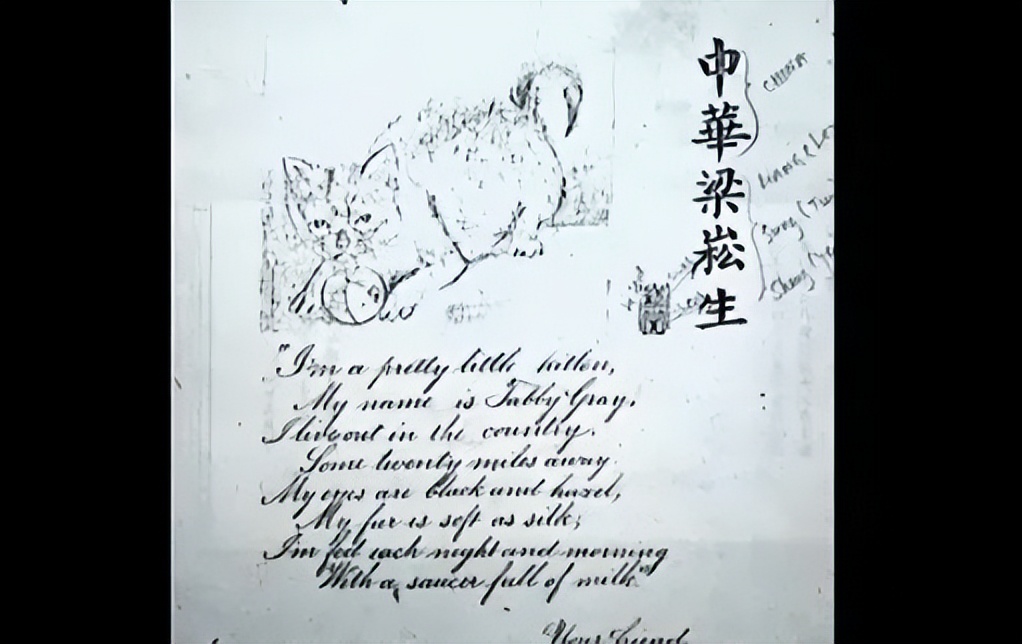 中華梁崧生
CHINA
"I'm a pretty little kitten,
My name is Tabby Gray,
I live out in the country.
Some twenty miles away.
My eyes are black and hazel,
My fur is soft as silk;
I'm fed each night and morning
With a saucer full of milk."
Your friend